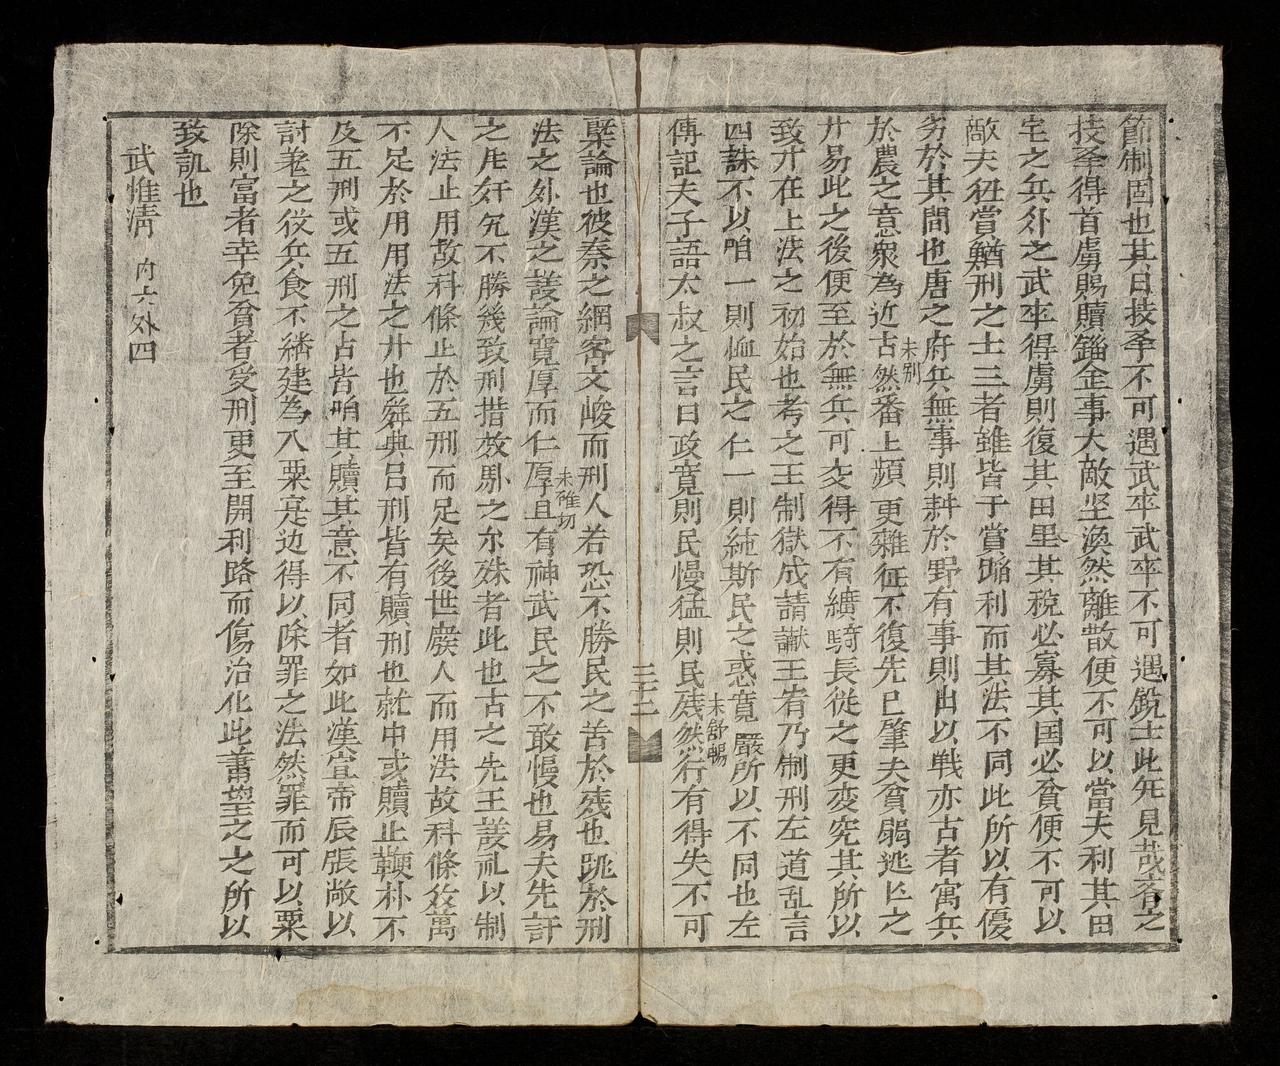 節制固也其曰技季不可遇武卒武卒不可遇銳士此先見哉者之
技季得首虜賜贖錙金事大敵坚渙然離散便不可以當夫利其田
宅之兵外之武卒得虜則復其田里其税必寡其国必貧便不可以
敵夫狃賞鰌刑之士三者雖皆于賞蹈利而其法不同此所以有優
劣於其間也唐之府兵無事則耕於野有事則出以戦亦古者寓兵
於農之意衆為近古然番上頻更雜征不復先已肇夫貧弱逃亡之
未别
廾易此之後便至於無兵可交得不有纊騎長從之更变究其所以
致廾在上法之初始也考之王制獄成請讞王宥乃制刑左道乱言
四誅不以咱一則恤民之仁一則純斯民之惑寬嚴所以不同也左
未舒暢
傳記夫子語太叔之言曰政寬則民慢猛則民残然行有得失不可
三十二
槩論也彼秦之網密文峻而刑人若恐不勝民之苦於残也跳於刑
未稚切
法之外漢之議論寬厚而仁厚且有神武民之不敢慢也易夫先訐
之庒奸宄不勝幾致刑措效馭之尔殊者此也古之先王議礼以制
人法止用故科條止於五刑而足矣後世廢人而用法故科條迩萬
不足於用用法之廾也舜典吕刑皆有贖刑也就中或贖止鞭朴不
及五刑或五刑之占皆咱其贖其意不同者如此漢宣帝辰張敞以
討羗之役兵食不繙建為入粟寔边得以除罪之法然罪而可以粟
除則富者幸免貧者受刑更至開利路而傷治化此蕭望之之所以
致訊也
武惟清 内六外四